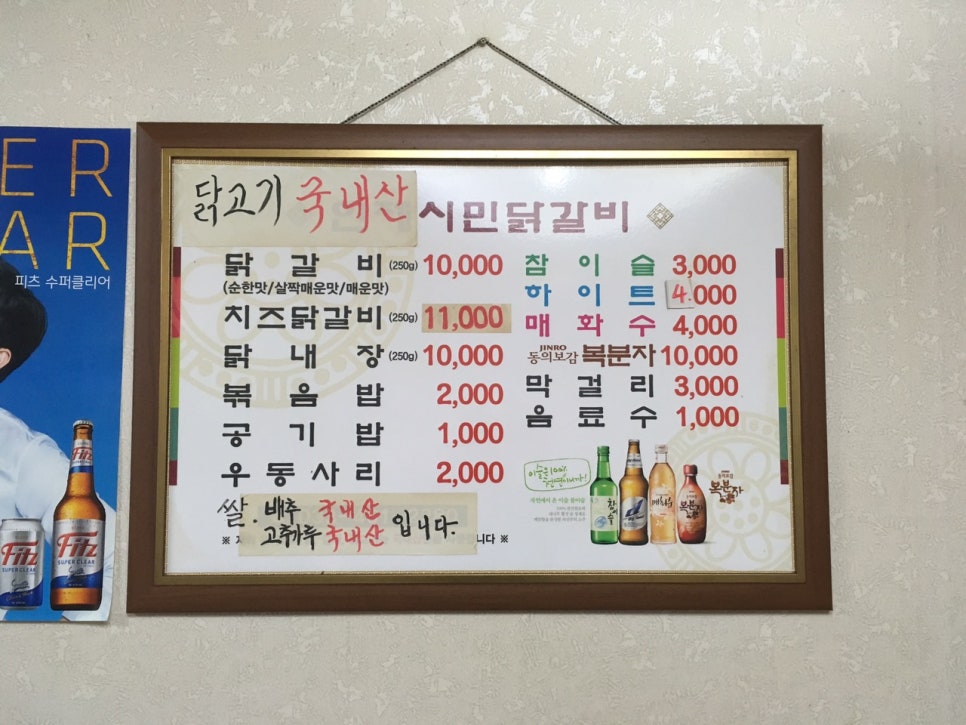 ER
AR
피츠 수퍼클리어
Fitz
Fitz
SUPER CLEAR
Fitz
SUPER CLEAR
닭고기 국내산
시민닭갈비
닭갈비 (250g) 10,000
(순한맛/살짝매운맛/매운맛)
치즈닭갈비 (250g) 11,000
닭내장 (250g) 10,000
볶음밥 2,000
공기밥 1,000
우동사리 2,000
쌀. 배추 국내산
고추가루 국내산 입니다.
※ 니다 ※
참이슬 3,000
하이트 4.000
매화수 4,000
JINRO
동의보감 복분자 10,000
막걸리 3,000
음료수 1,000
참이슬
매화수
복분자
복분자